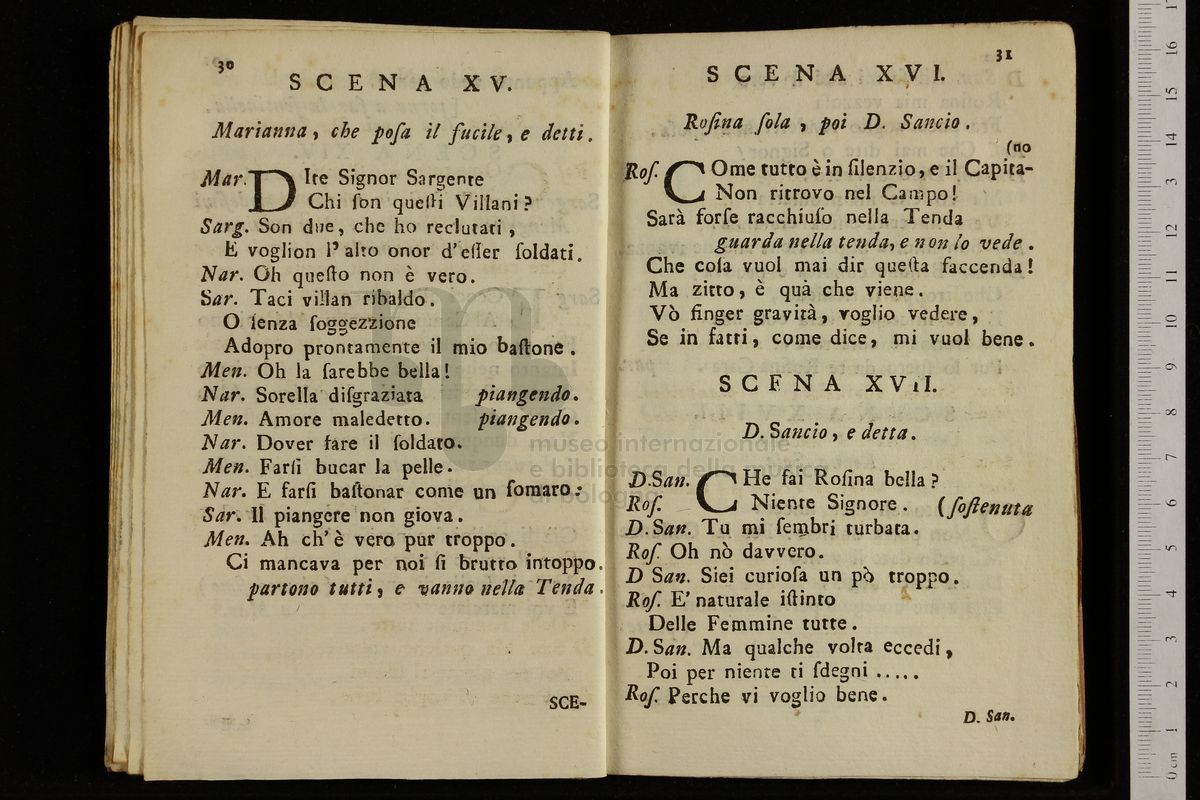 30
SCENA XV.
Marianna, che poſa il fucile, e detti.
Mar. DIte Signor Sargente
Chi ſon queſti Villani?
Sarg. Son due, che ho reclutati,
E voglion l'alto onor d'eſſer ſoldati.
Nar. Oh queſto non è vero.
Sar. Taci villan ribaldo.
O ſenza ſoggezzione
Adopro prontamente il mio baſtone.
Men. Oh la ſarebbe bella!
Nar. Sorella diſgraziata piangendo.
Men. Amore maledetto. piangendo.
Nar. Dover fare il ſoldato.
Men. Farſi bucar la pelle.
Nar. E farſi baſtonar come un ſomaro.
Sar. Il piangere non giova.
Men. Ah ch'è vero pur troppo.
Ci mancava per noi ſi brutto intoppo.
partono tutti, e vanno nella Tenda.
SCE-
31
SCENA XVI.
Roſina ſola, poi D. Sancio.
(no
Roſ. COme tutto è in ſilenzio, e il Capita-
Non ritrovo nel Campo!
Sarà forſe racchiuſo nella Tenda
guarda nella tenda, e non lo vede.
Che coſa vuol mai dir queſta faccenda!
Ma zitto, è quà che viene.
Vò finger gravità, voglio vedere,
Se in fatti, come dice, mi vuol bene.
SCENA XVII.
D. Sancio, e detta.
D.San. CHe fai Roſina bella?
Roſ. Niente Signore. (ſoſtenuta
D. San. Tu mi ſembri turbata.
Roſ. Oh nò davvero.
D San. Siei curioſa un pò troppo.
Roſ. E' naturale iſtinto
Delle Femmine tutte.
D. San. Ma qualche volta eccedi,
Poi per niente ti ſdegni .....
Roſ. Perche vi voglio bene.
D. San.
museo internazionale
e biblioteca della musica
di bologna
0 cm 1 2 3 4 5 6 7 8 9 10 11 12 13 14 15 16 17